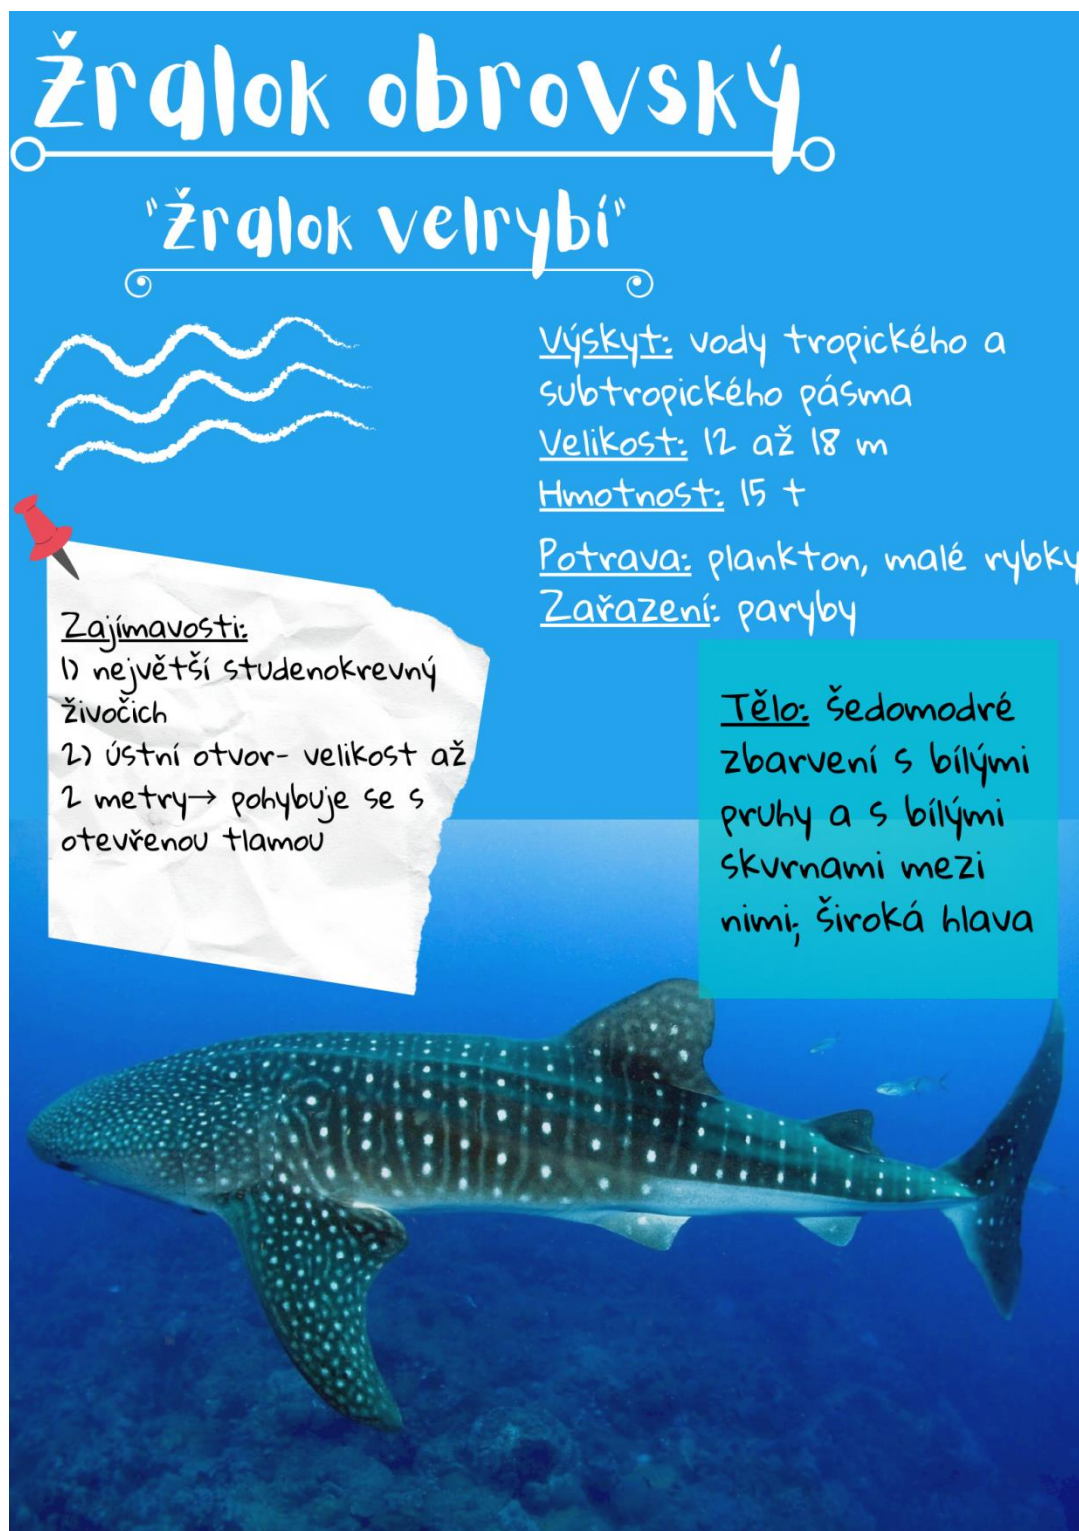 žralok obrovský
"žralok velrybí"
Výskyt: vody tropického a
subtropického pásma
Velikost: 12 až 18 m
Hmotnost: 15 t
Potrava: plankton, malé rybky
Zařazení: paryby
Zajímavosti:
1) největší studenokrevný
živočich
2) ústní otvor- velikost až
2 metry→ pohybuje se s
otevřenou tlamou
Tělo: šedomodré
zbarvení s bílými
pruhy a s bílými
skvrnami mezi
nimi; široká hlava